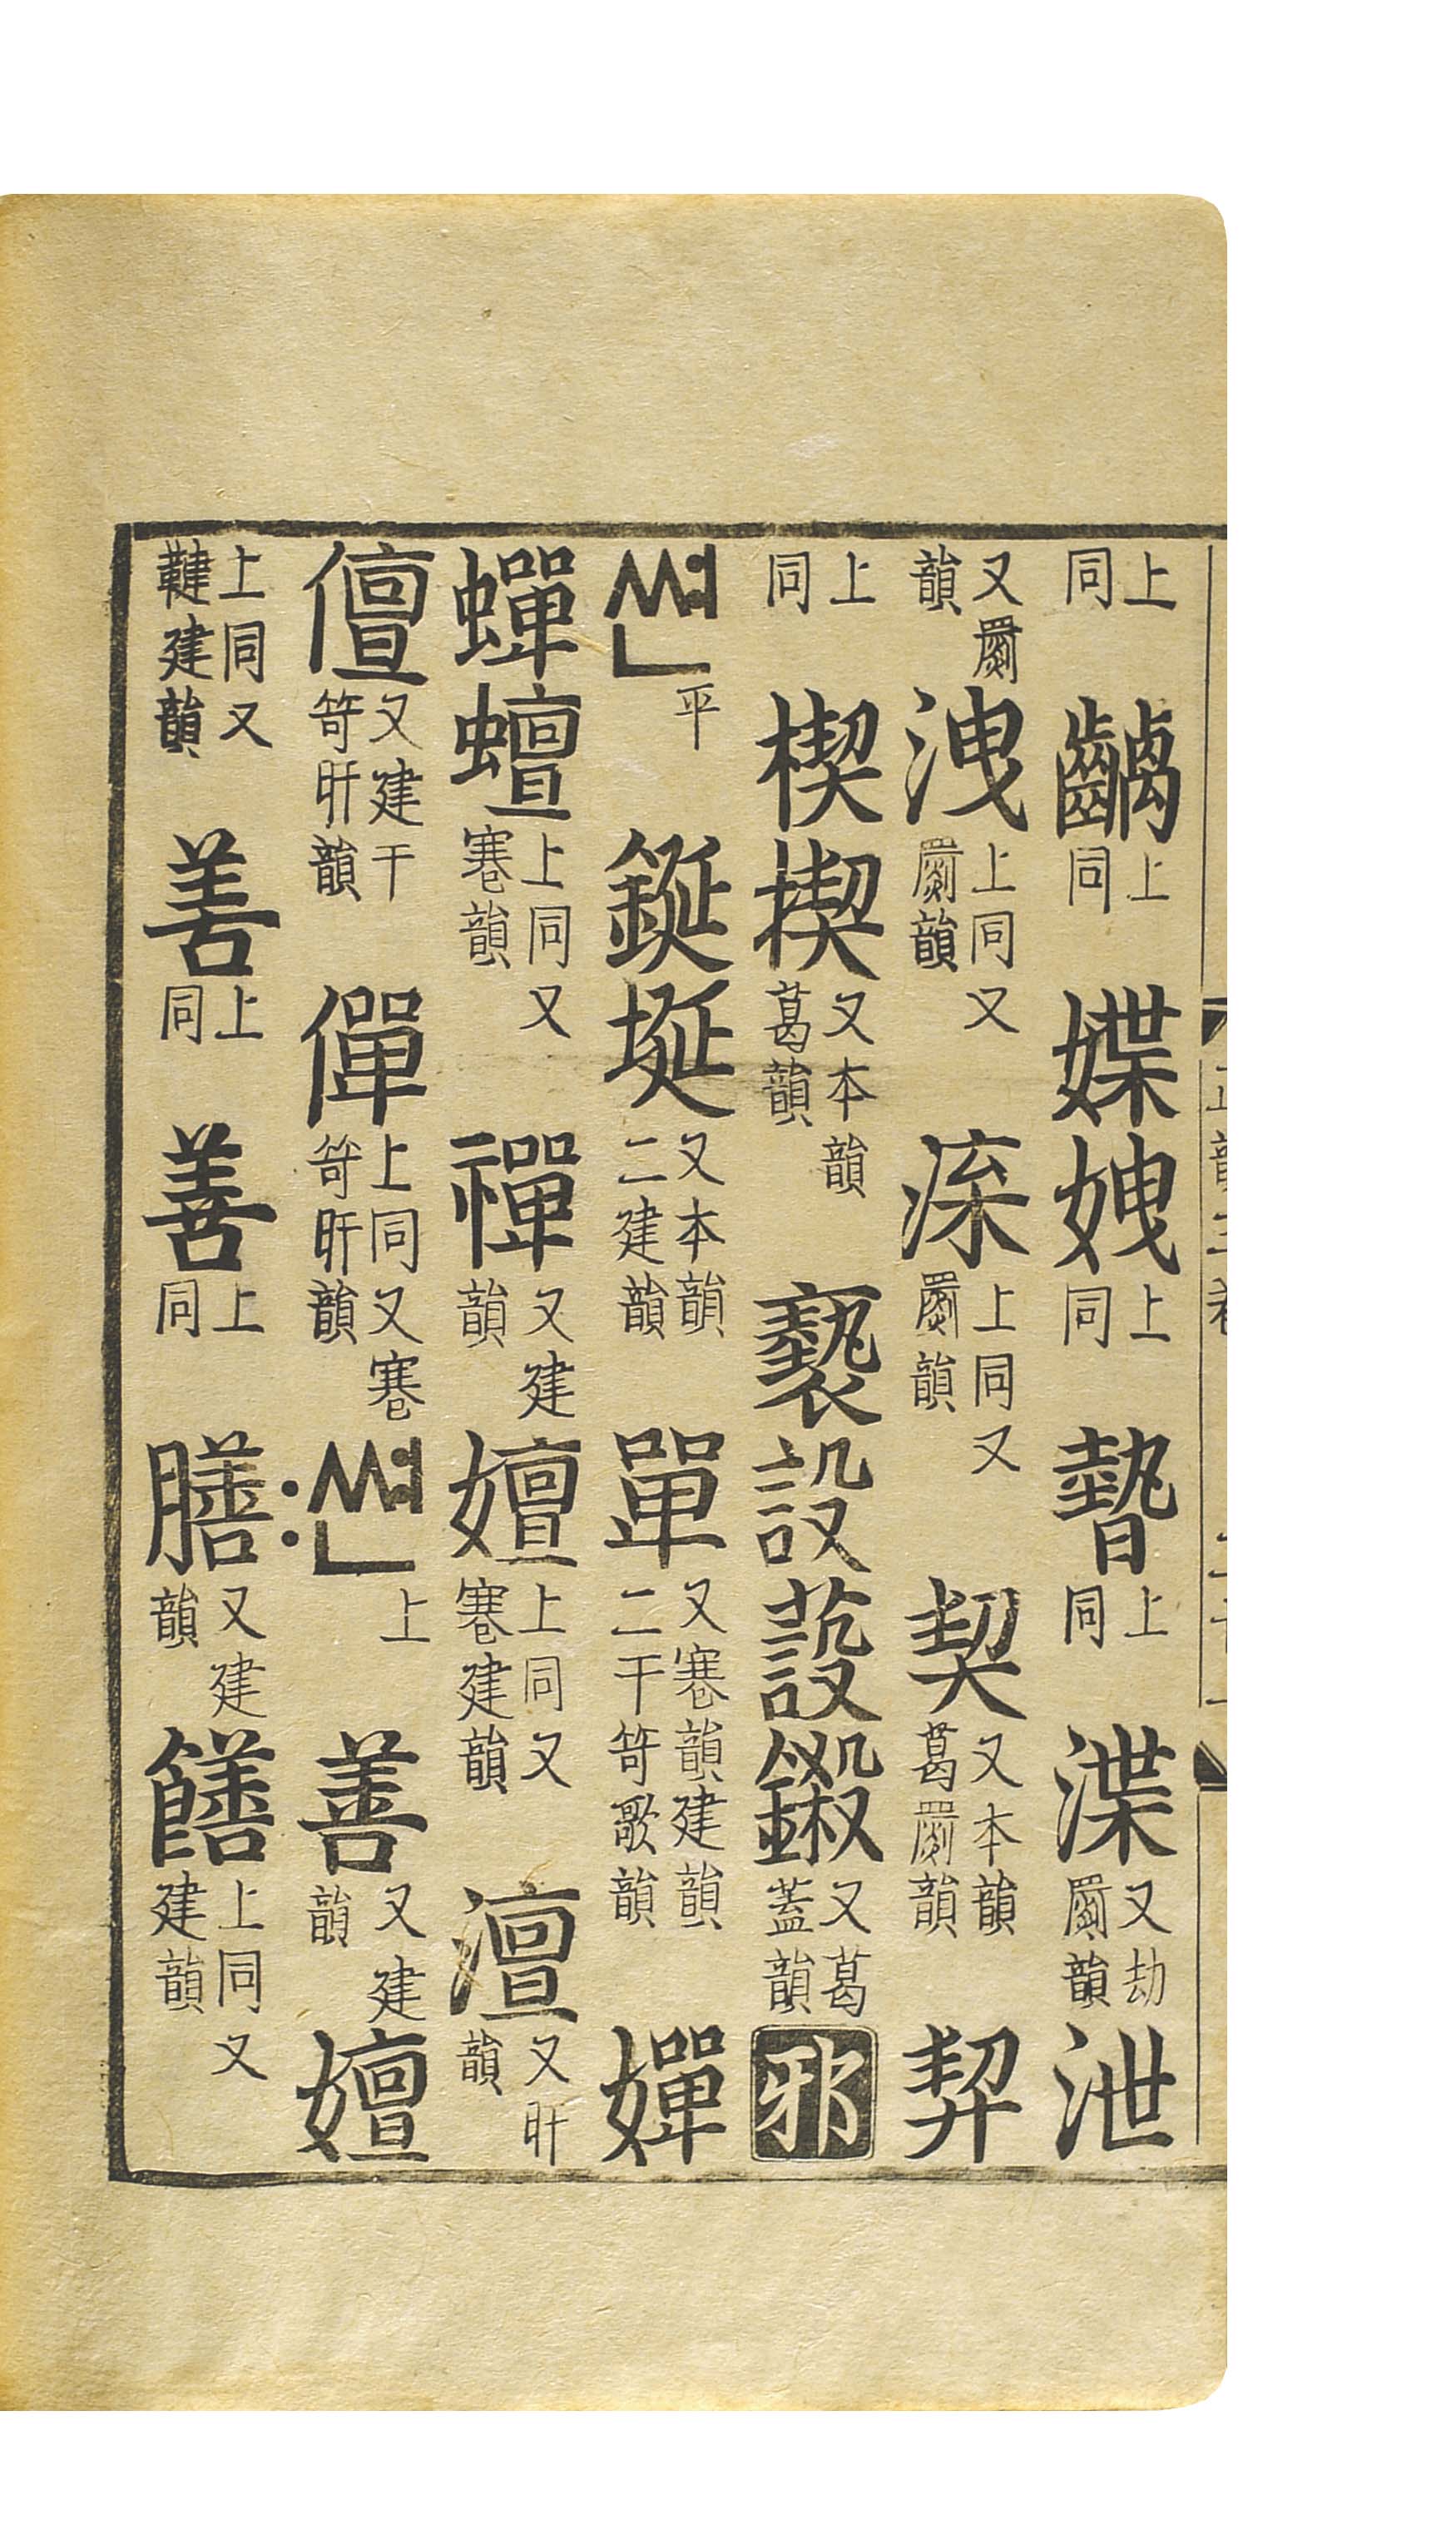 上同 齵上同 媟媟上同 暬上同 渫又罽劫韻 泄
又罽韻 洩上同又罽韻 㳿上同又罽韻 契又本韻葛罽韻 挈
上同 楔揳又本韻葛韻 褻設蔎鎩又葛蓋韻 邪
쎤平 鋋埏又本韻二建韻 單又寋韻建韻二干笴歌韻 嬋
蟬蟺上同又寋韻 禪又建韻 嬗上同又寋建韻 澶又旰韻
儃又建干笴旰韻 僤上同又寋笴旰韻 쎤上 善又建韻 嬗
上同又韕建韻 善上同 善上同 膳又建韻 饍上同又建韻